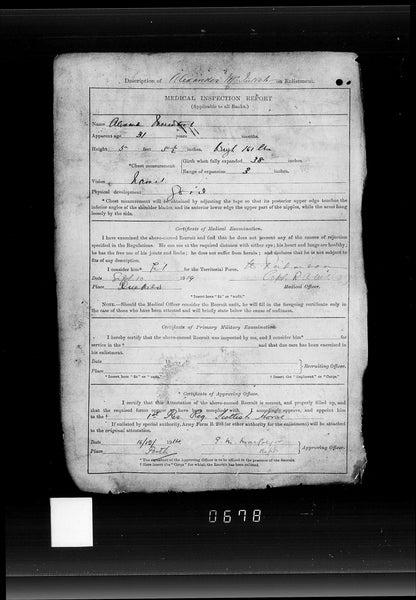 Description of Alexander McIntosh on Enlistment.
MEDICAL INSPECTION REPORT
(Applicable to all Ranks.)
Name
Apparent age 31 years months.
Height 5 feet 5½ inches.
*Chest measurement { Girth when fully expanded 38 inches
Range of expansion 3 inches.
Vision Normal
Physical development Good
* Chest measurement will be obtained by adjusting the tape so that its posterior upper edge touches the
inferior angles of the shoulder blades, and its anterior lower edge the upper part of the nipples, while the arms hang
loosely by the side.
Certificate of Medical Examination.
I have examined the above-named Recruit and find that he does not present any of the causes of rejection
specified in the Regulations. He can see at the required distance with either eye; his heart and lungs are healthy;
he has the free use of his joints and limbs; he does not suffer from hernia; and he declares that he is not subject to
fits of any description.
I consider him* Fit for the Territorial Force.
Date Sept 10 1914
Place Medical Officer.
*Insert here "fit" or "unfit."
NOTE.—Should the Medical Officer consider the Recruit unfit, he will fill in the foregoing certificate only in
the case of those who have been attested, and will briefly state below the cause of unfitness.
Certificate of Primary Military Examination.
I hereby certify that the above-named Recruit was inspected by me, and I consider him* for
service in the † and that due care has been exercised in
his enlistment.
Date
Place Recruiting Officer.
* Insert here "fit" or "unfit." † Insert the "Regiment" or "Corps."
Certificate of Approving Officer.
I certify that this Attestation of the above-named Recruit is correct, and properly filled up, and
that the required forms appear to have been complied with. I accordingly approve, and appoint him
to the † 1st Res Reg Scottish Horse
If enlisted by special authority, Army Form B. 203 (or other authority for the enlistment) will be attached
to the original attestation.
Date 1914
Place Perth Approving Officer.
* The signature of the Approving Officer is to be affixed in the presence of the Recruit.
† Here insert the "Corps" for which the Recruit has been enlisted.
0678